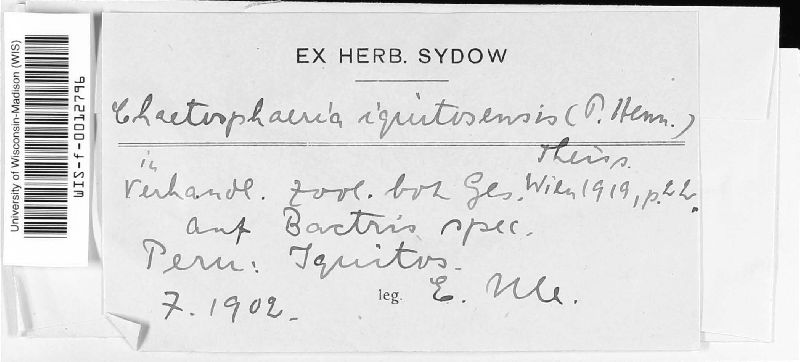 University of Wisconsin-Madison (WIS)
WIS-f-0012796
EX HERB. SYDOW
Chaetosphaeria iquitosensis (P. Henn.)
Theiss.
in
Verhandl. zool. bot Ges. Wien 1919, p. 22.
auf Bactris spec.
Peru: Iquitos.
7. 1902. leg. E. Ule.